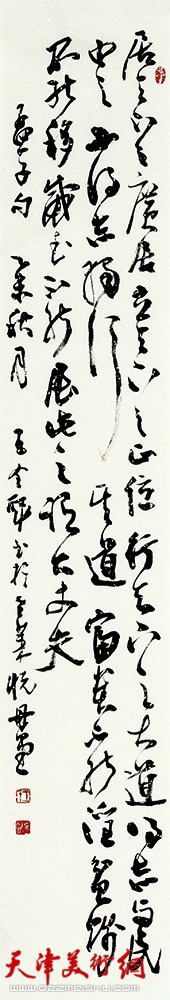 居天下之廣居立天下之正位行天下之大道得志与民
由之不得志獨行其道富貴不能淫貧賤
不能移威武不能屈此之謂大丈夫
孟子句 乙未秋月 王全聚书於
天津美術網
www.022meishu.com